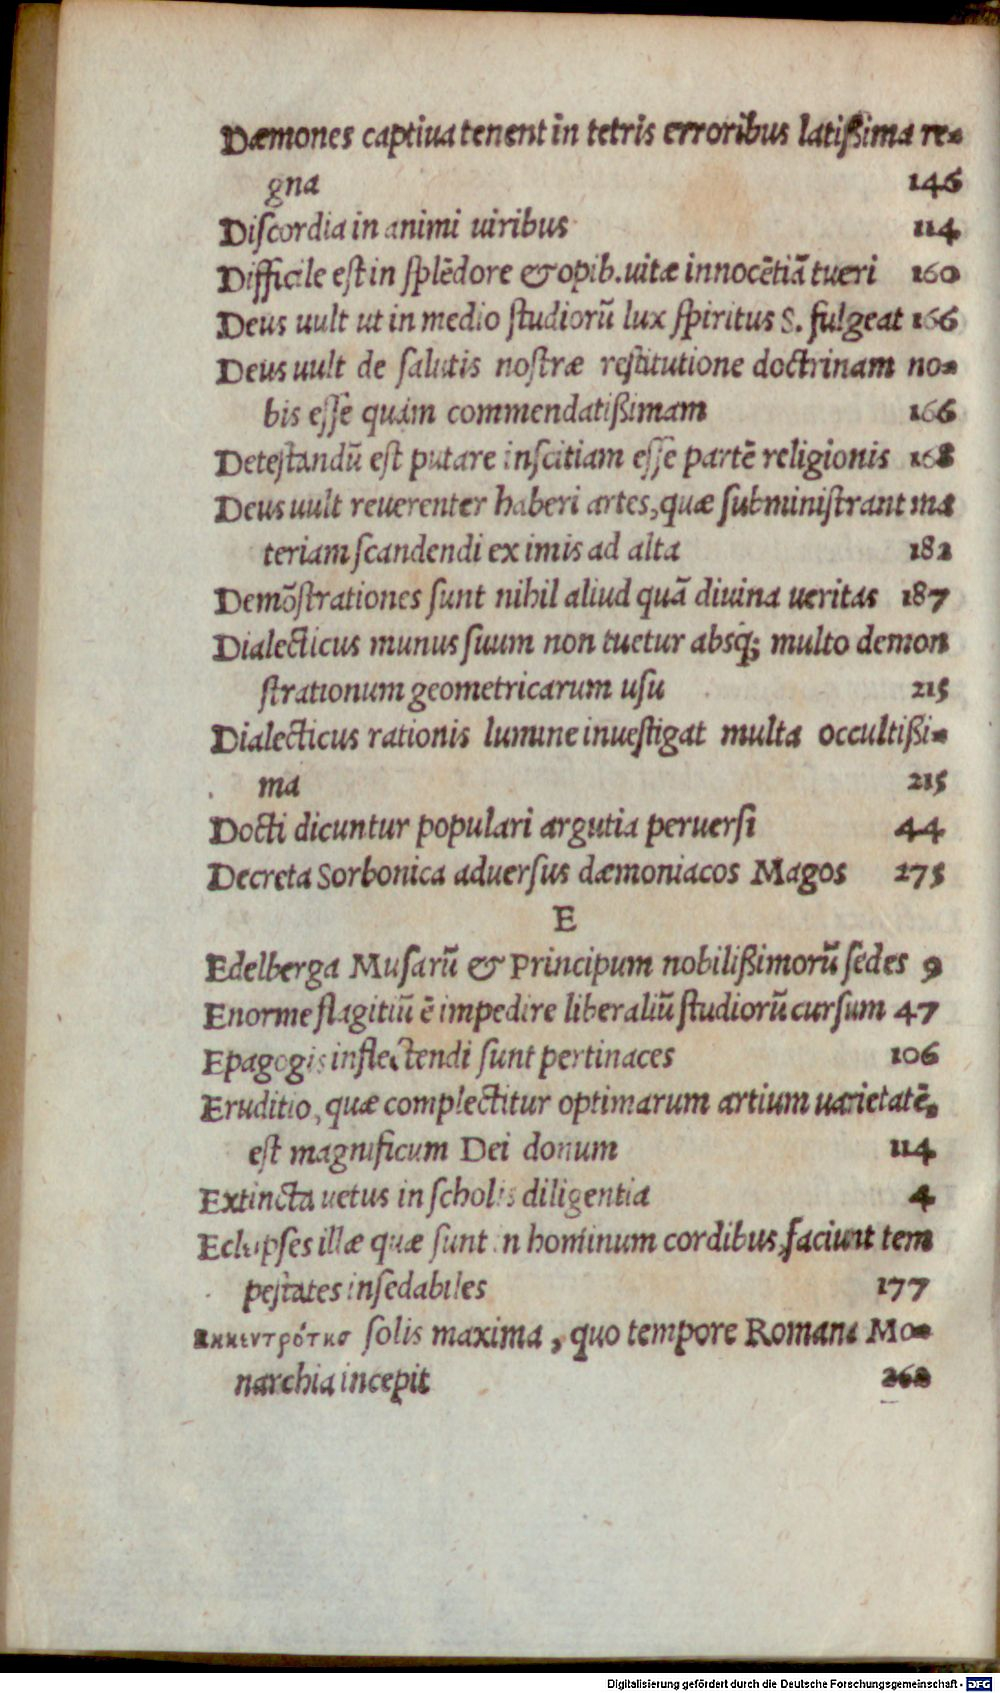 Dæmones captiua tenent in tetris erroribus latißima re-
gna 146
Diſcordia in animi uiribus 114
Difficile eſt in ſplēdore & opib. uitæ innocētiā tueri 160
Deus uult ut in medio ſtudiorū lux ſpiritus S. fulgeat 166
Deus uult de ſalutis noſtræ reſtitutione doctrinam no-
bis eſſe quàm commendatißimam 166
Deteſtandū eſt putare inſcitiam eſſe partē religionis 168
Deus uult reuerenter haberi artes, quæ ſubminiſtrant ma
teriam ſcandendi ex imis ad alta 182
Demōſtrationes ſunt nihil aliud quā diuina ueritas 187
Dialecticus munus ſuum non tuetur absq́; multo demon
ſtrationum geometricarum uſu 215
Dialecticus rationis lumine inueſtigat multa occultißi-
ma 215
Docti dicuntur populari argutia peruerſi 44
Decreta Sorbonica aduerſus dæmoniacos Magos 275
E
Edelberga Muſarū & Principum nobilißimorū ſedes 9
Enorme flagitiū ē impedire liberaliū ſtudiorū curſum 47
Epagogis inflectendi ſunt pertinaces 106
Eruditio, quæ complectitur optimarum artium uarietatē,
eſt magnificum Dei donum 114
Extincta uetus in ſcholis diligentia 4
Eclipſes illæ quæ ſunt in hominum cordibus, faciunt tem
peſtates inſedabiles 177
ſolis maxima, quo tempore Romana Mo-
narchia incepit 268
Digitalisierung gefördert durch die Deutsche Forschungsgemeinschaft - DFG